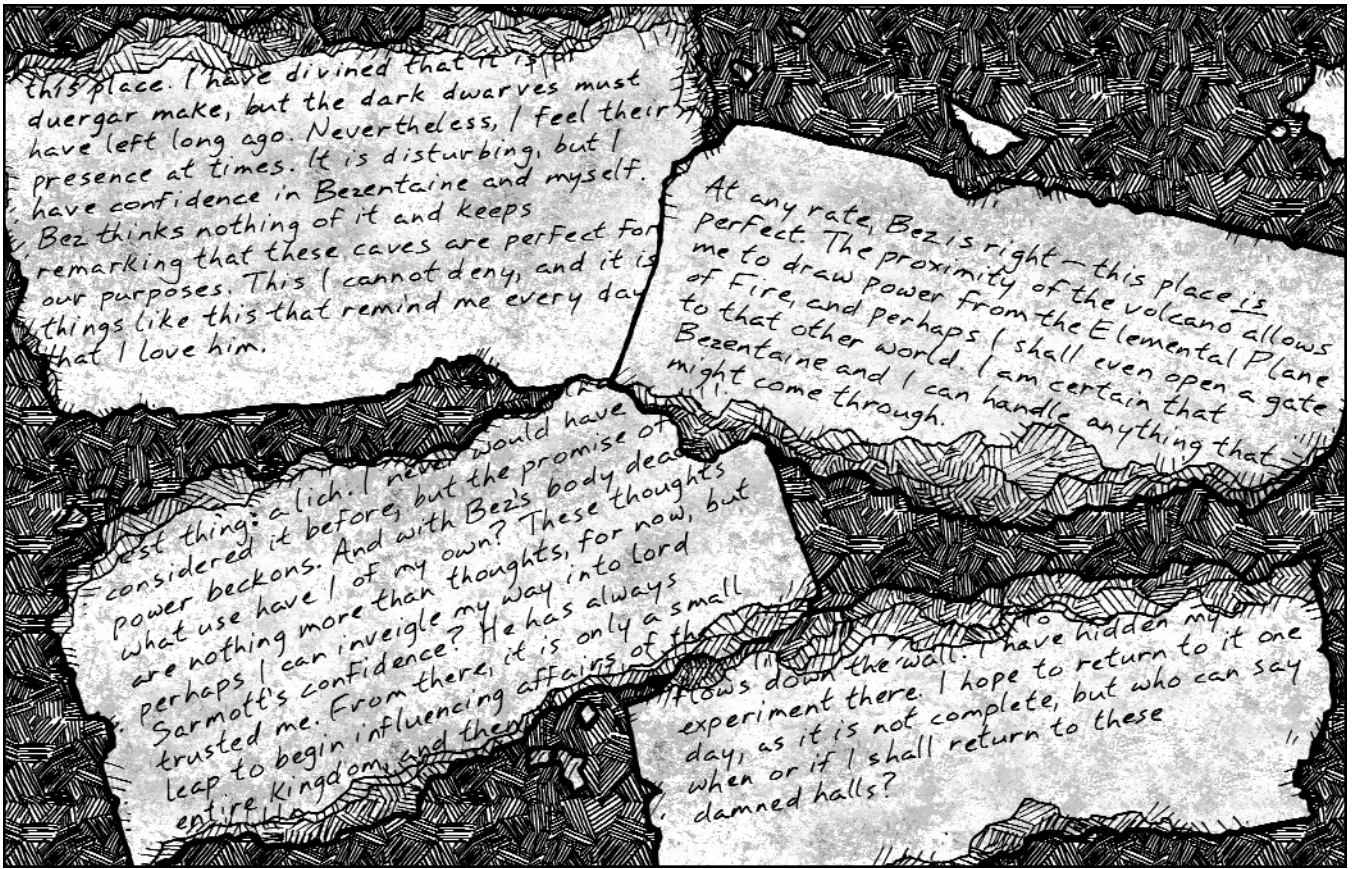 this place. I have divined that it is
duergar make, but the dark dwarves must
have left long ago. Nevertheless, I feel their
presence at times. It is disturbing, but I
have confidence in Bezentaine and myself.
Bez thinks nothing of it and keeps
remarking that these caves are perfect for
our purposes. This I cannot deny, and it is
things like this that remind me every day
that I love him.
At any rate, Bez is right – this place is
perfect. The proximity of the volcano allows
me to draw power from the Elemental Plane
of Fire, and perhaps I shall even open a gate
to that other world. I am certain that
Bezentaine and I can handle anything that
might come through.
est thing: a lich. I never would have
considered it before, but the promise of
power beckons. And with Bez's body dead
what use have I of my own? These thoughts
are nothing more than thoughts, for now, but
perhaps I can inveigle my way into lord
Sarmott's confidence? He has always
trusted me. From there, it is only a small
leap to begin influencing affairs of the
entire kingdom, and then
flows down the wall. I have hidden my
experiment there. I hope to return to it one
day, as it is not complete, but who can say
when or if I shall return to these
damned halls?